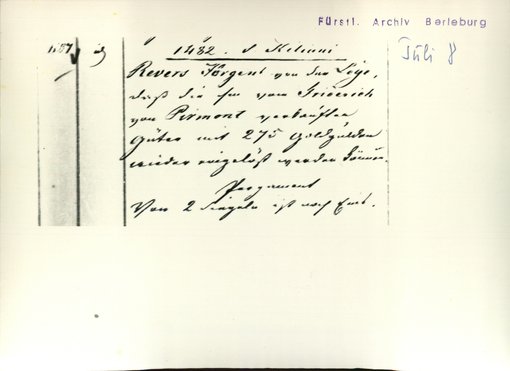 Fürstl. Archiv Berleburg
Juli 8
1482. S Kiliani
Revers Jörgens von der Leye,
daß die ihm vom Friderich
von Pirmont verkauften
Güter mit 275 Goldgulden
wieder eingelößt werden können.
Pergament
Von 2 Siegeln ist noch